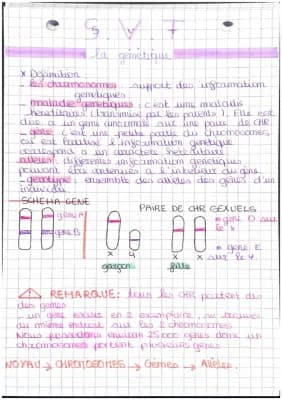 S V T
La génétique
* Définition
- les chromosomes : support des information
génétiques
- maladie génétiques : c'est une maladie
héréditaires (transmise par les parents). Elle est
due a un gène anormale sur une paire de CHR
- gène : c'est une petite partie du chromosomes
où est localisé l'information génétique
correspond a un caractère héréditaire
allèles : différentes information génétiques
pouvant être contenues à l'intérieur du gène
- génotype : ensemble des allèles des gènes d'un
individu
SCHEMA GENE
PAIRE DE CHR SEXUELS
gène A
gène B
= gène D sur
le X
= gène E
sur le Y.
X Y
X X
garçon
fille
REMARQUE : tous les CHR portent
des gènes
un gène existe en 2 exemplaire, se trouves
au même endroit sur les 2 chromosomes.
Nous possédons environ 25 000 gènes donc un
chromosomes portent plusieurs gènes
NOYAU → CHROMOSOMES → Gènes → Allèles.